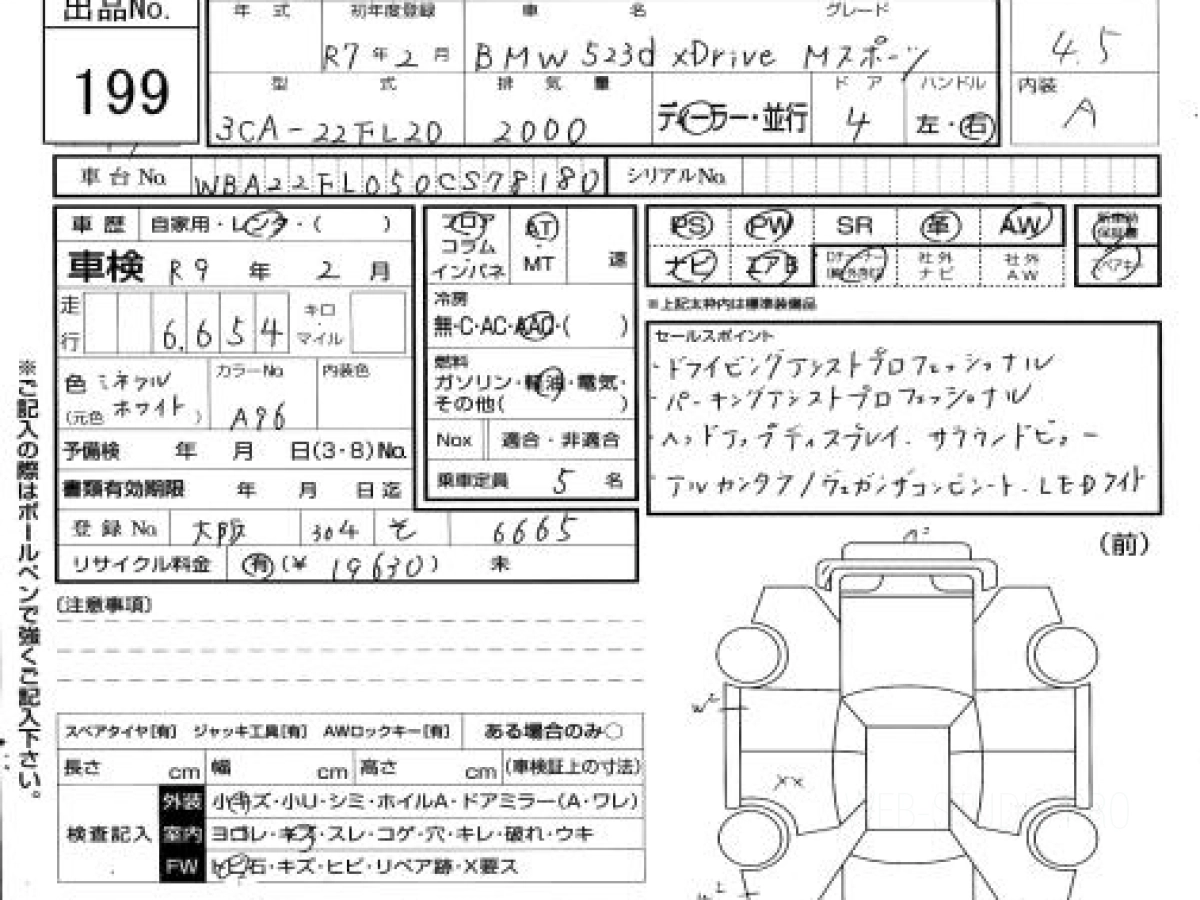 出品No.
199
年式
初年度登録
R7年2月
車名
グレード
BMW 523d xDrive Mスポーツ
4.5
型式
3CA-22FL20
排気量
2000
ディーラー・並行
ドア
4
ハンドル
左・右
内装
A
車台No.
WBA22FL050CS78180
シリアルNo.
車歴
自家用・レンタ・( )
車検
R9年2月
走行
6,654
キロ
・
マイル
色
ミネラルホワイト
(元色 )
カラーNo.
A96
内装色
予備検 年 月 日(3・8)No.
書類有効期限 年 月 日迄
登録No.
大阪
304
そ
6665
リサイクル料金
有(¥ 19630)
未
フロア
コラム
インパネ
AT
・
MT
速
冷房
無・C・AC・AAC・( )
燃料
ガソリン・軽油・電気・
その他( )
Nox
適合・非適合
乗車定員
5名
PS
PW
SR
革
AW
新車時
保証書
ナビ
エアB
社外
ナビ
社外
AW
スペアキー
※上記太枠内は標準装備品
セールスポイント
・ドライビングアシストプロフェッショナル
・パーキングアシストプロフェッショナル
・ヘッドアップディスプレイ.サラウンドビュー
・アルカンタラ/ヴェガンザコンビシート.LEDライト
※ご記入の際はボールペンで強くご記入下さい。
(注意事項)
スペアタイヤ[有] ジャッキ工具[有] AWロックキー[有]
ある場合のみ○
長さ cm
幅 cm
高さ cm
(車検証上の寸法)
検査記入
外装
小キズ・小U・シミ・ホイルA・ドアミラー(A・ワレ)
室内
ヨゴレ・キズ・スレ・コゲ・穴・キレ・破れ・ウキ
FW
トビ石・キズ・ヒビ・リペア跡・X要ス
(前)
W2
XX